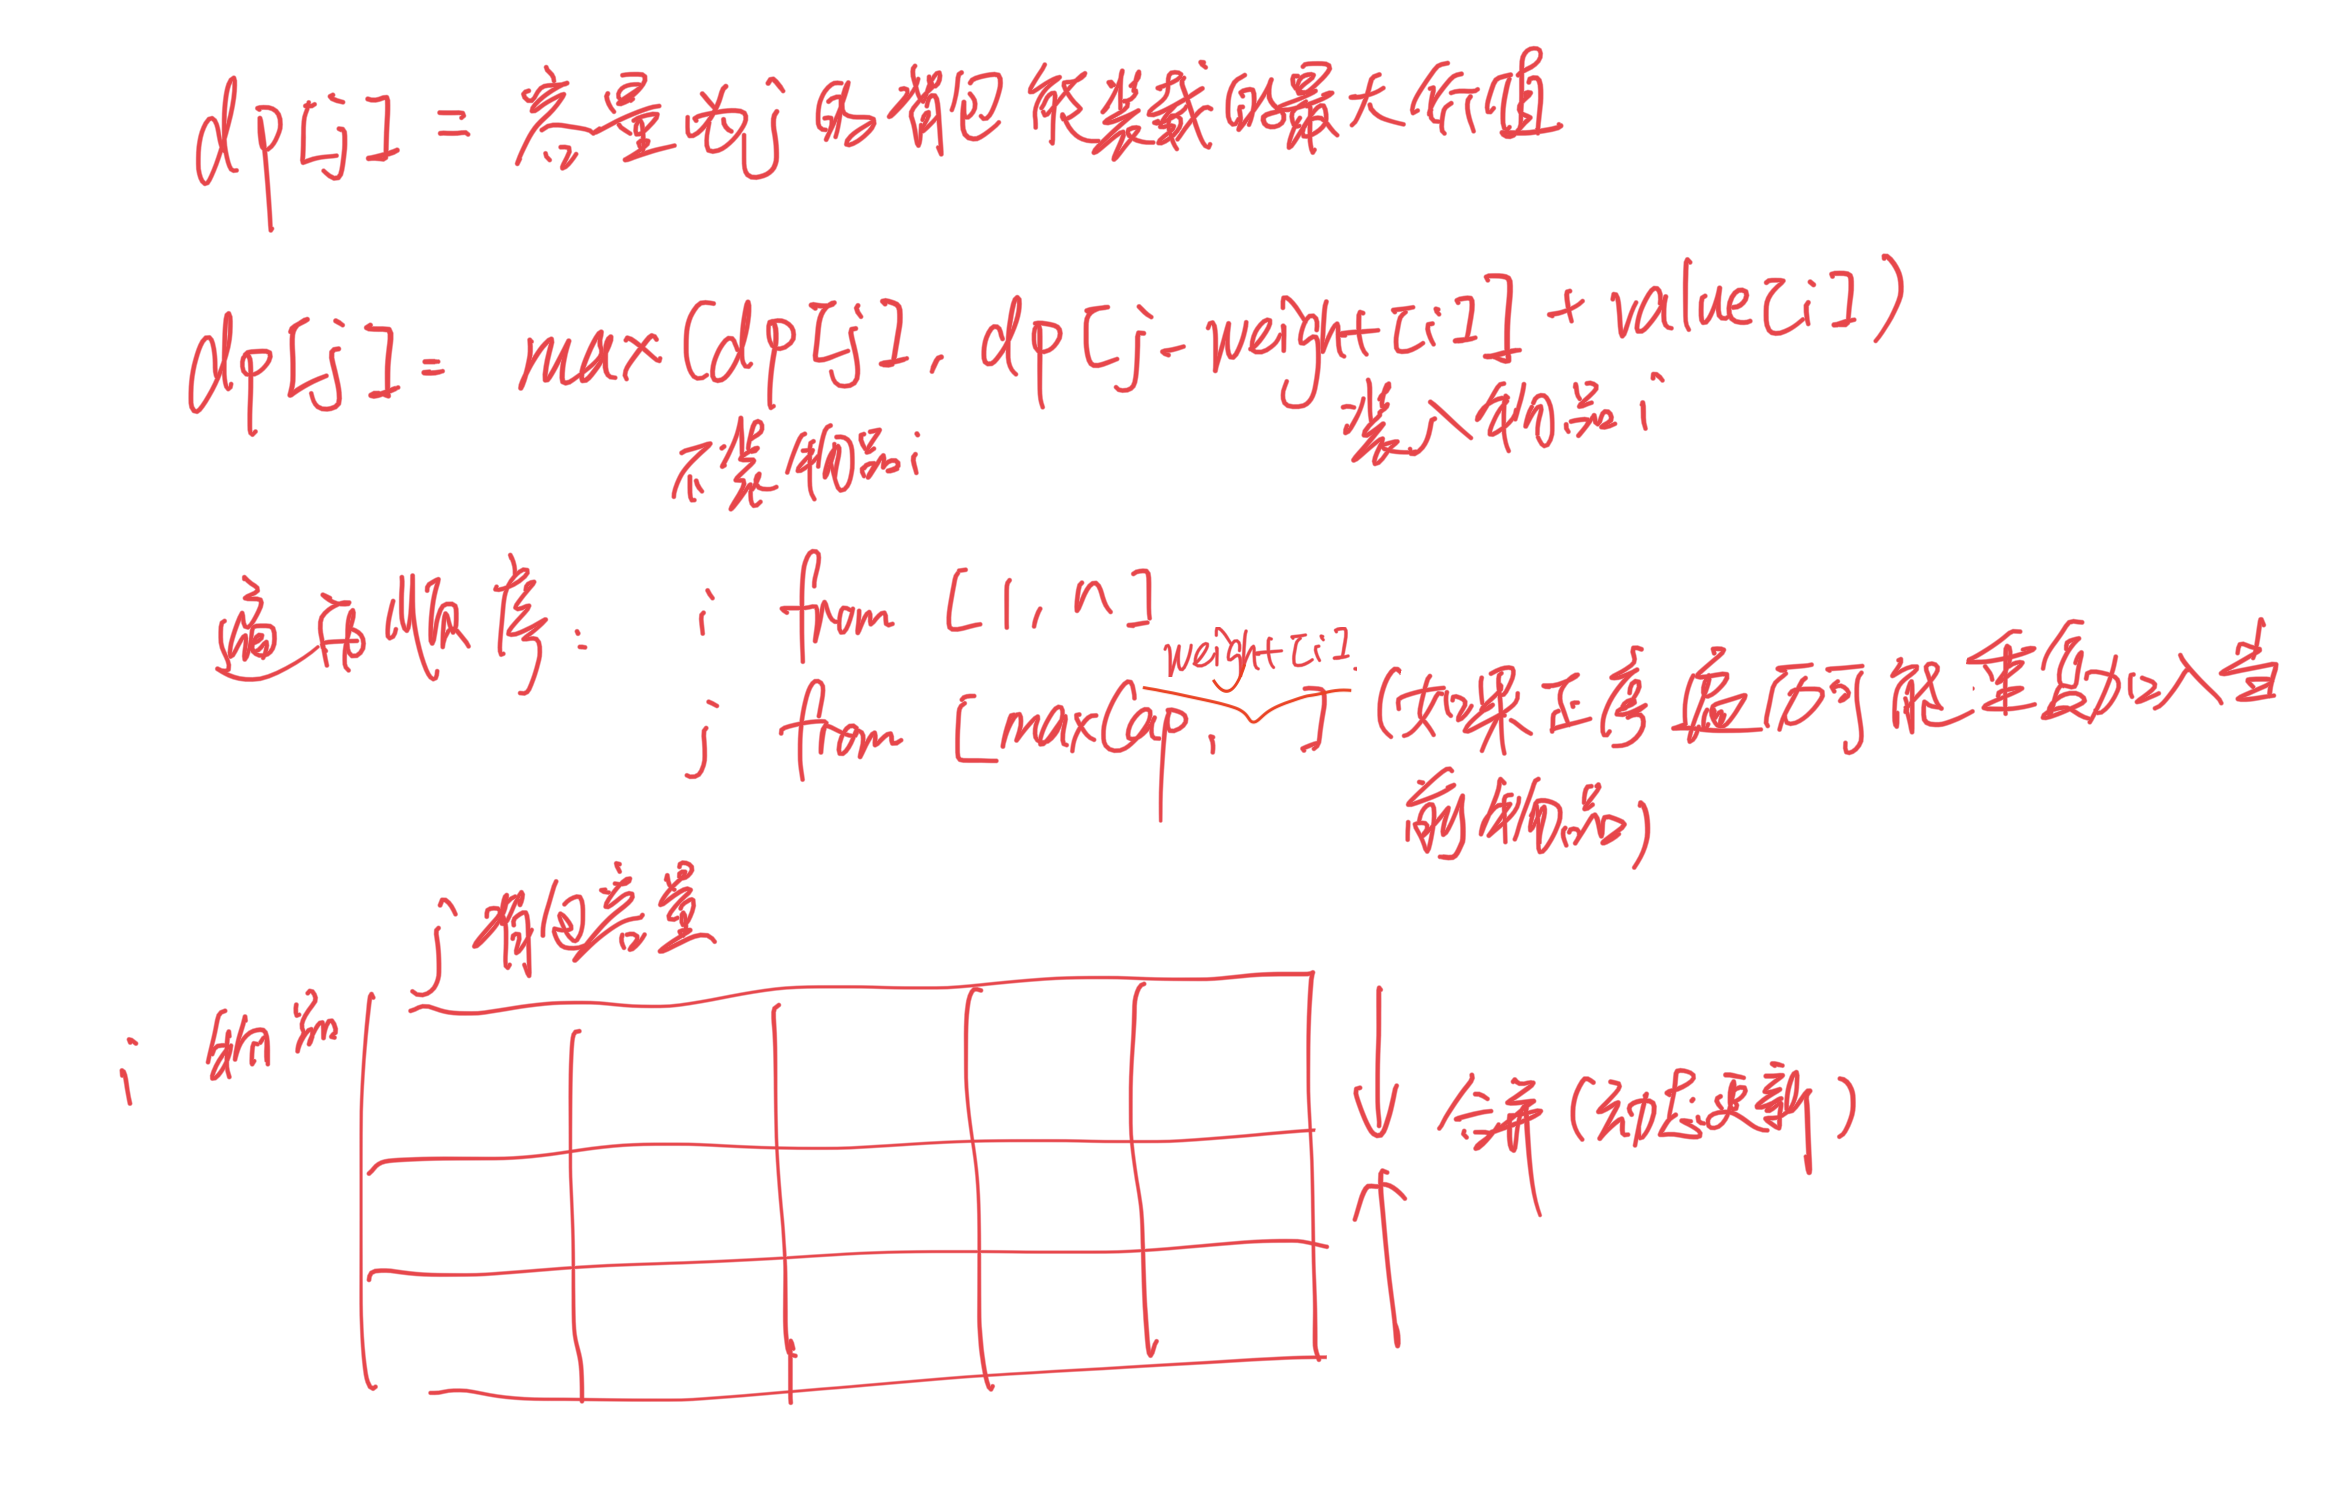 dp[j] = 容量为j的背包能装载的最大价值
dp[j] = max(dp[j], dp[j-weight[i]] + value[i])
不装物品i 装入物品i
遍历顺序: i from [1, n]
weight[i]
j from [maxCap, ] (如果正序遍历可能重复加入当
前物品)
j 背包容量
i 物品
合并 (状态更新)